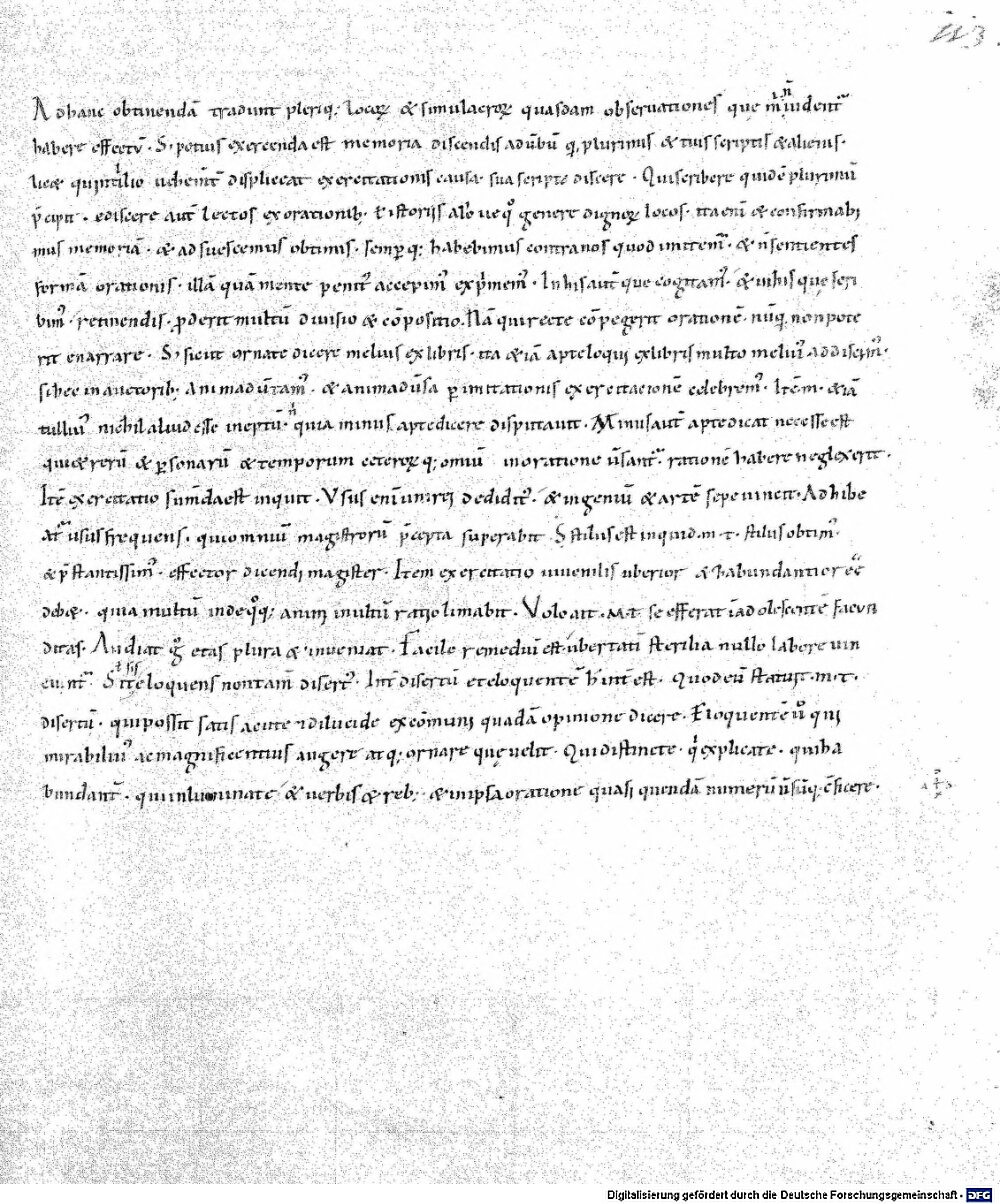 113.
Ad hanc obtinendā tradunt pleriq; locoꝝ & simulacroꝝ quasdam observationes que m̄ n̄ uident᷑
habere effectū. S; potius exercenda est memoria discendis ad ūbū q̄ plurimis & tuis scriptis & alienis.
lic& quintilio uehem̄t displiceat exercitationis causa sua scripta discere. Qui scribere quidē plurimū
p̄cipit. ediscere aut̄ lectos ex orationib; t̄ istoriis alio ue q̊ genere dignoꝝ locos. ita eni & confirmabi
mus memoriā. & adsuescemus obtimis. semp̄q; habebimus contra nos quod imitem᷑. & ñ sentientes
formā orationis. illā quā mente penit᷒ accepim᷒ exp̄mem᷒. In his aut̄ que cogitam᷒. & in his que scri
bim᷒. retinendis. p̄derit multū diuisio & cōpositio. Nā qui recte cōpegerit orationē. nūq̄ non pote
rit enarrare. S; sicut ornate dicere melius ex libris. ita &iā apte loqui ex libris multo meli᷒ addiscim᷒.
si hec in auctorib; animaduertam᷒. & animaduersa p̄ imitationis exercitacionē celebrem᷒. Itē m. &iā
tulli᷒ nichil aliud esse ineptū. n̄ quia minus apte dicere disputauit. Minus aut̄ apte dicat necesse est
qui & rerū & p̄sonarū & temporum ceteroꝝ q; omniū in oratione ūsant᷑ rationē habere neglexerit.
Itē exercitatio sumēda est inquit. Usus eni uni rei dedit᷒. & ingeniū & artē sepe uincit. Adhibe
at᷑ usus frequens. qui omniū magistrorū p̄cepta superabit. Stilus est inquid .m. t. stilus obtim᷒.
& p̄stantissim᷒. effector dicendi magister. Item exercitatio iuuenilis uberior & habundantior eē
deb&. quia multū inde q̊q; anni multū ratio limabit. Volo ait. M. t. se efferat ī adolescente facun
ditas. Audiat g̊ etas plura & inueniat. Facile remediū est ubertati sterilia nullo labore uin
cunt᷑. Sit te loquens non tam̄ disert᷒. Int̄ disertū et eloquentē h̄ int̄ est. Quod eū statuit .m. t.
disertū. qui possit satis acute & dilucide ex cōmuni quadā opinione dicere. Eloquentē ů qui
mirabili᷒ ac magnificentius augere atq; ornare que uelit. Qui distincte. q̇ explicate. qui ha
bundant̄. qui inluminate & uerbis & reb; & in ipsa oratione quasi quendā numerū ūsūq; cōficere.
Digitalisierung gefördert durch die Deutsche Forschungsgemeinschaft - DFG